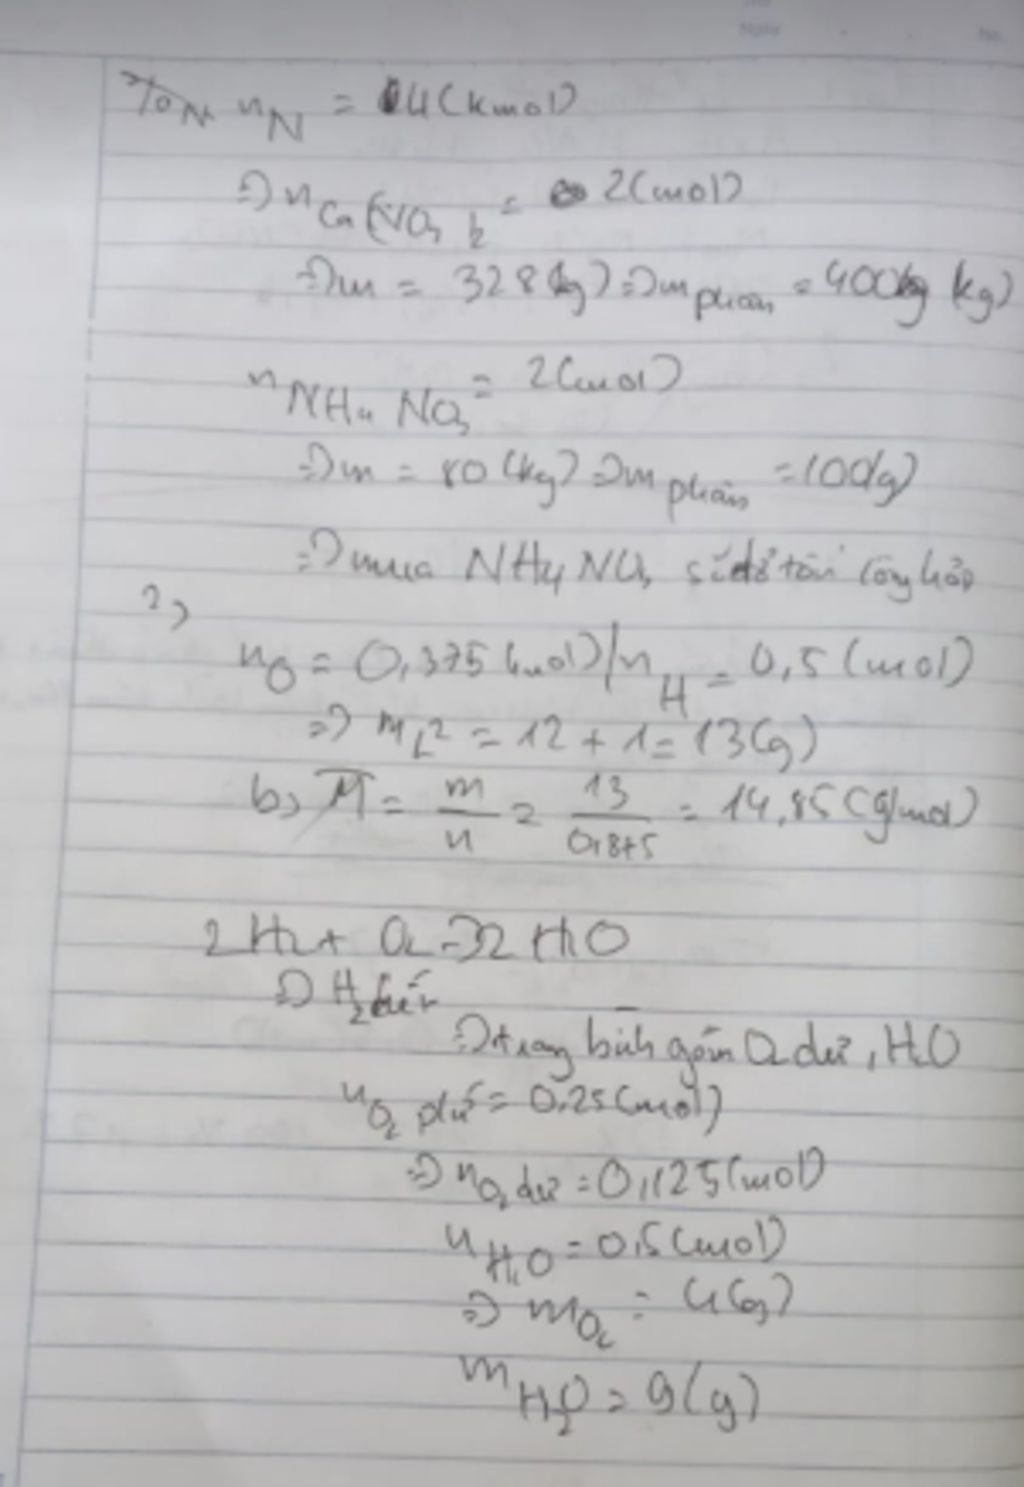 n_N = 4 (kmol)
=> n_Ca(NO3)2 = 2 (mol)
=> m = 328 (kg) => m phân = 400 kg)
n_NH4NO3 = 2 (mol)
=> m = 80 (kg) => m phân = 100 (g)
=> mua NH4NO3 sẽ đỡ tốn công hơn
2,
n_O = 0,375 (mol) / n_H = 0,5 (mol)
=> m_L2 = 12 + 1 = 13 (g)
b, M̅ = m/n = 13/0,875 = 14,85 (g/mol)
2H2 + O2 -> 2H2O
=> H2 hết
=> trong bình gồm O2 dư, H2O
n_O2 phứ = 0,25 (mol)
=> n_O2 dư = 0,125 (mol)
n_H2O = 0,5 (mol)
=> m_O2 = 4 (g)
m_H2O = 9 (g)